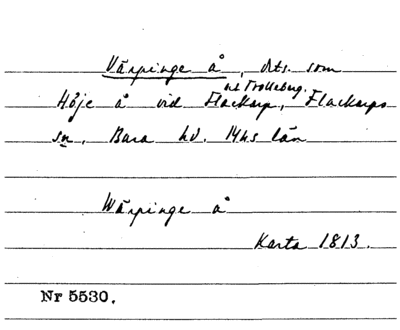 Värpinge å, dets. som
o. Trolleberg.
Höje å vid Flackarp, Flackarps
sn, Bara hd. Mhs län
Wärpinge å
Karta 1813.
Nr 5530.